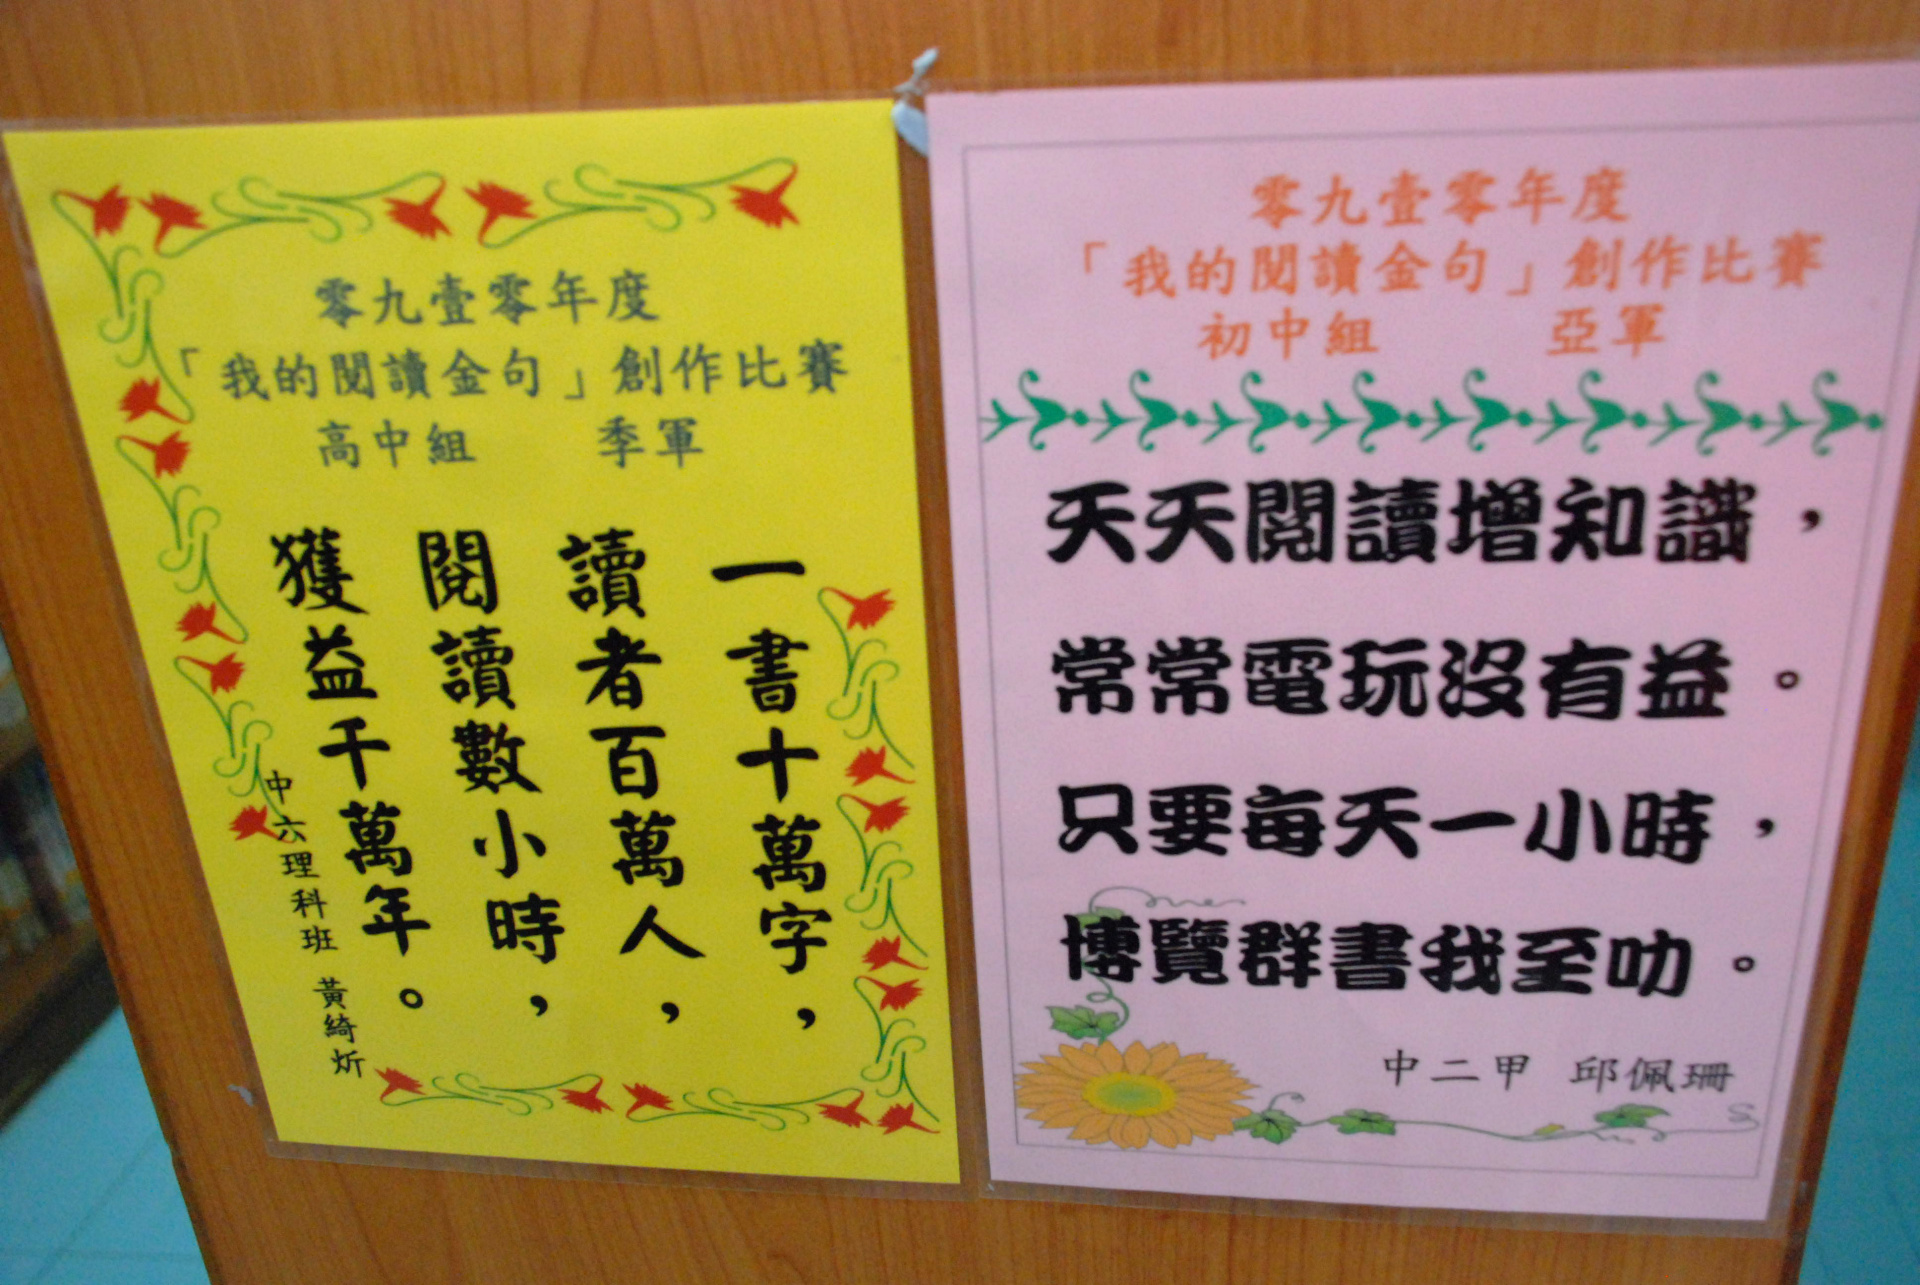 零九壹零年度
「我的閱讀金句」創作比賽
高中組 季軍
一書十萬字，
讀者百萬人，
閱讀數小時，
獲益千萬年。
中六理科班 黃綺炘
零九壹零年度
「我的閱讀金句」創作比賽
初中組 亞軍
天天閱讀增知識，
常常電玩沒有益。
只要每天一小時，
博覽群書我至叻。
中二甲 邱佩珊